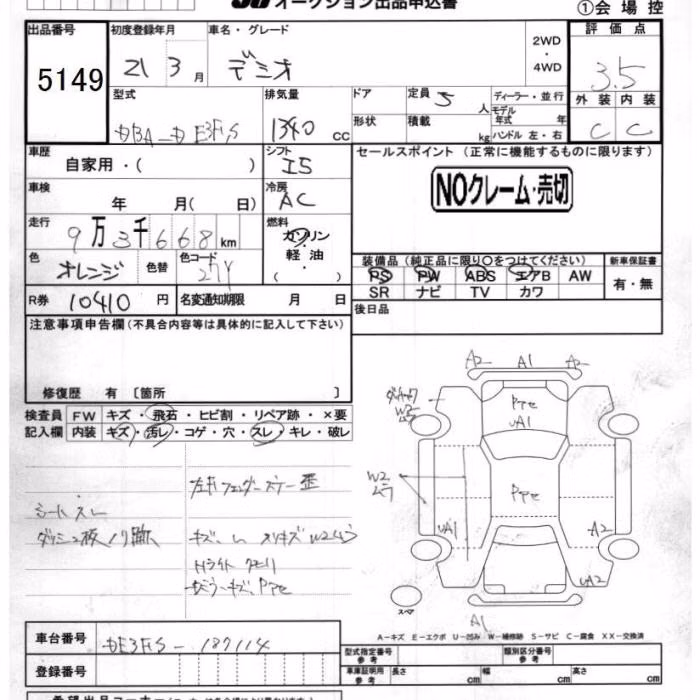 オークション出品申込書
①会場控
出品番号 初度登録年月 車名・グレード 2WD・4WD 評価点
5149 21 3月 デミオ 3.5
型式 排気量 ドア 定員 5人 ディーラー・並行 外装 内装
DBA-DE3FS 1340 cc 形状 積載 kg モデル年式 年 ハンドル 左・右 C C
車歴 シフト セールスポイント (正常に機能するものに限ります)
自家用・( ) I5
NOクレーム・売切
車検 冷房
年 月( 日) AC
走行 燃料
9万3千668km ガソリン
軽油
( )
色 オレンジ 色替 色コード 27Y
装備品 (純正品に限り○をつけてください) 新車保証書
PS PW ABS エアB AW 有・無
SR ナビ TV カワ
R券 10410円 名変通知期限 月 日
後日品
注意事項申告欄(不具合内容等は具体的に記入して下さい)
修復歴 有 〔箇所 〕
検査員 FW キズ・飛石・ヒビ割・リペア跡・×要
記入欄 内装 キズ・汚レ・コゲ・穴・スレ・キレ・破レ
A2 A1 A2
W2
UA1
W2
ムラ
UA1
A2
UA2
A1
シートスレ
スペア
A-キズ E-エクボ U-凹み W-補修跡 S-サビ C-腐食 XX-交換済
車台番号 DE3FS-187114
登録番号
型式指定番号 参考 類別区分番号 参考
車庫証明用 参考 長さ cm 幅 cm 高さ cm